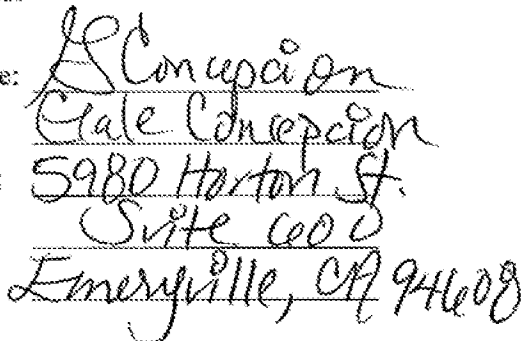 e: G Concepcion
Gale Concepcion
: 5980 Horton St.
Suite 600
Emeryville, CA 94608